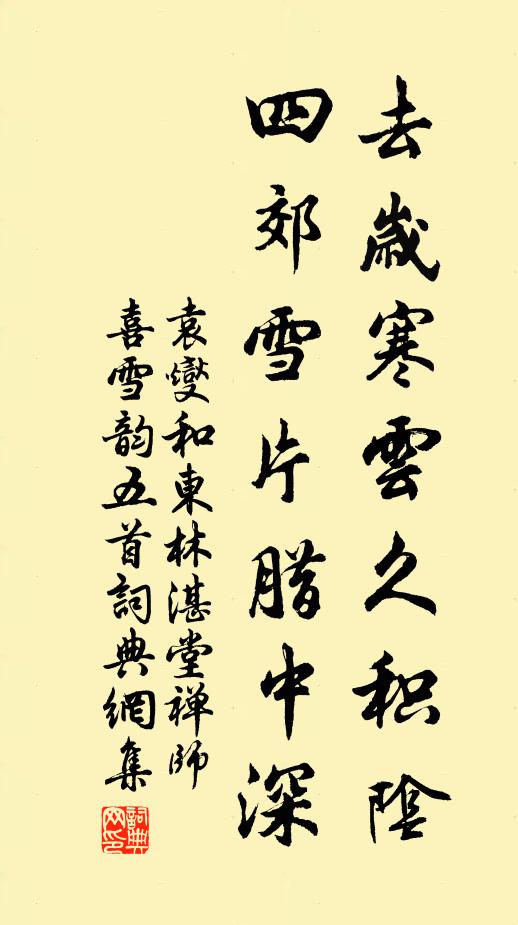 去歲寒雲久积陰
四郊雪片腊中深
袁燮和東林湛堂禅師
喜雪韵五首詞典網集
詞典
网印